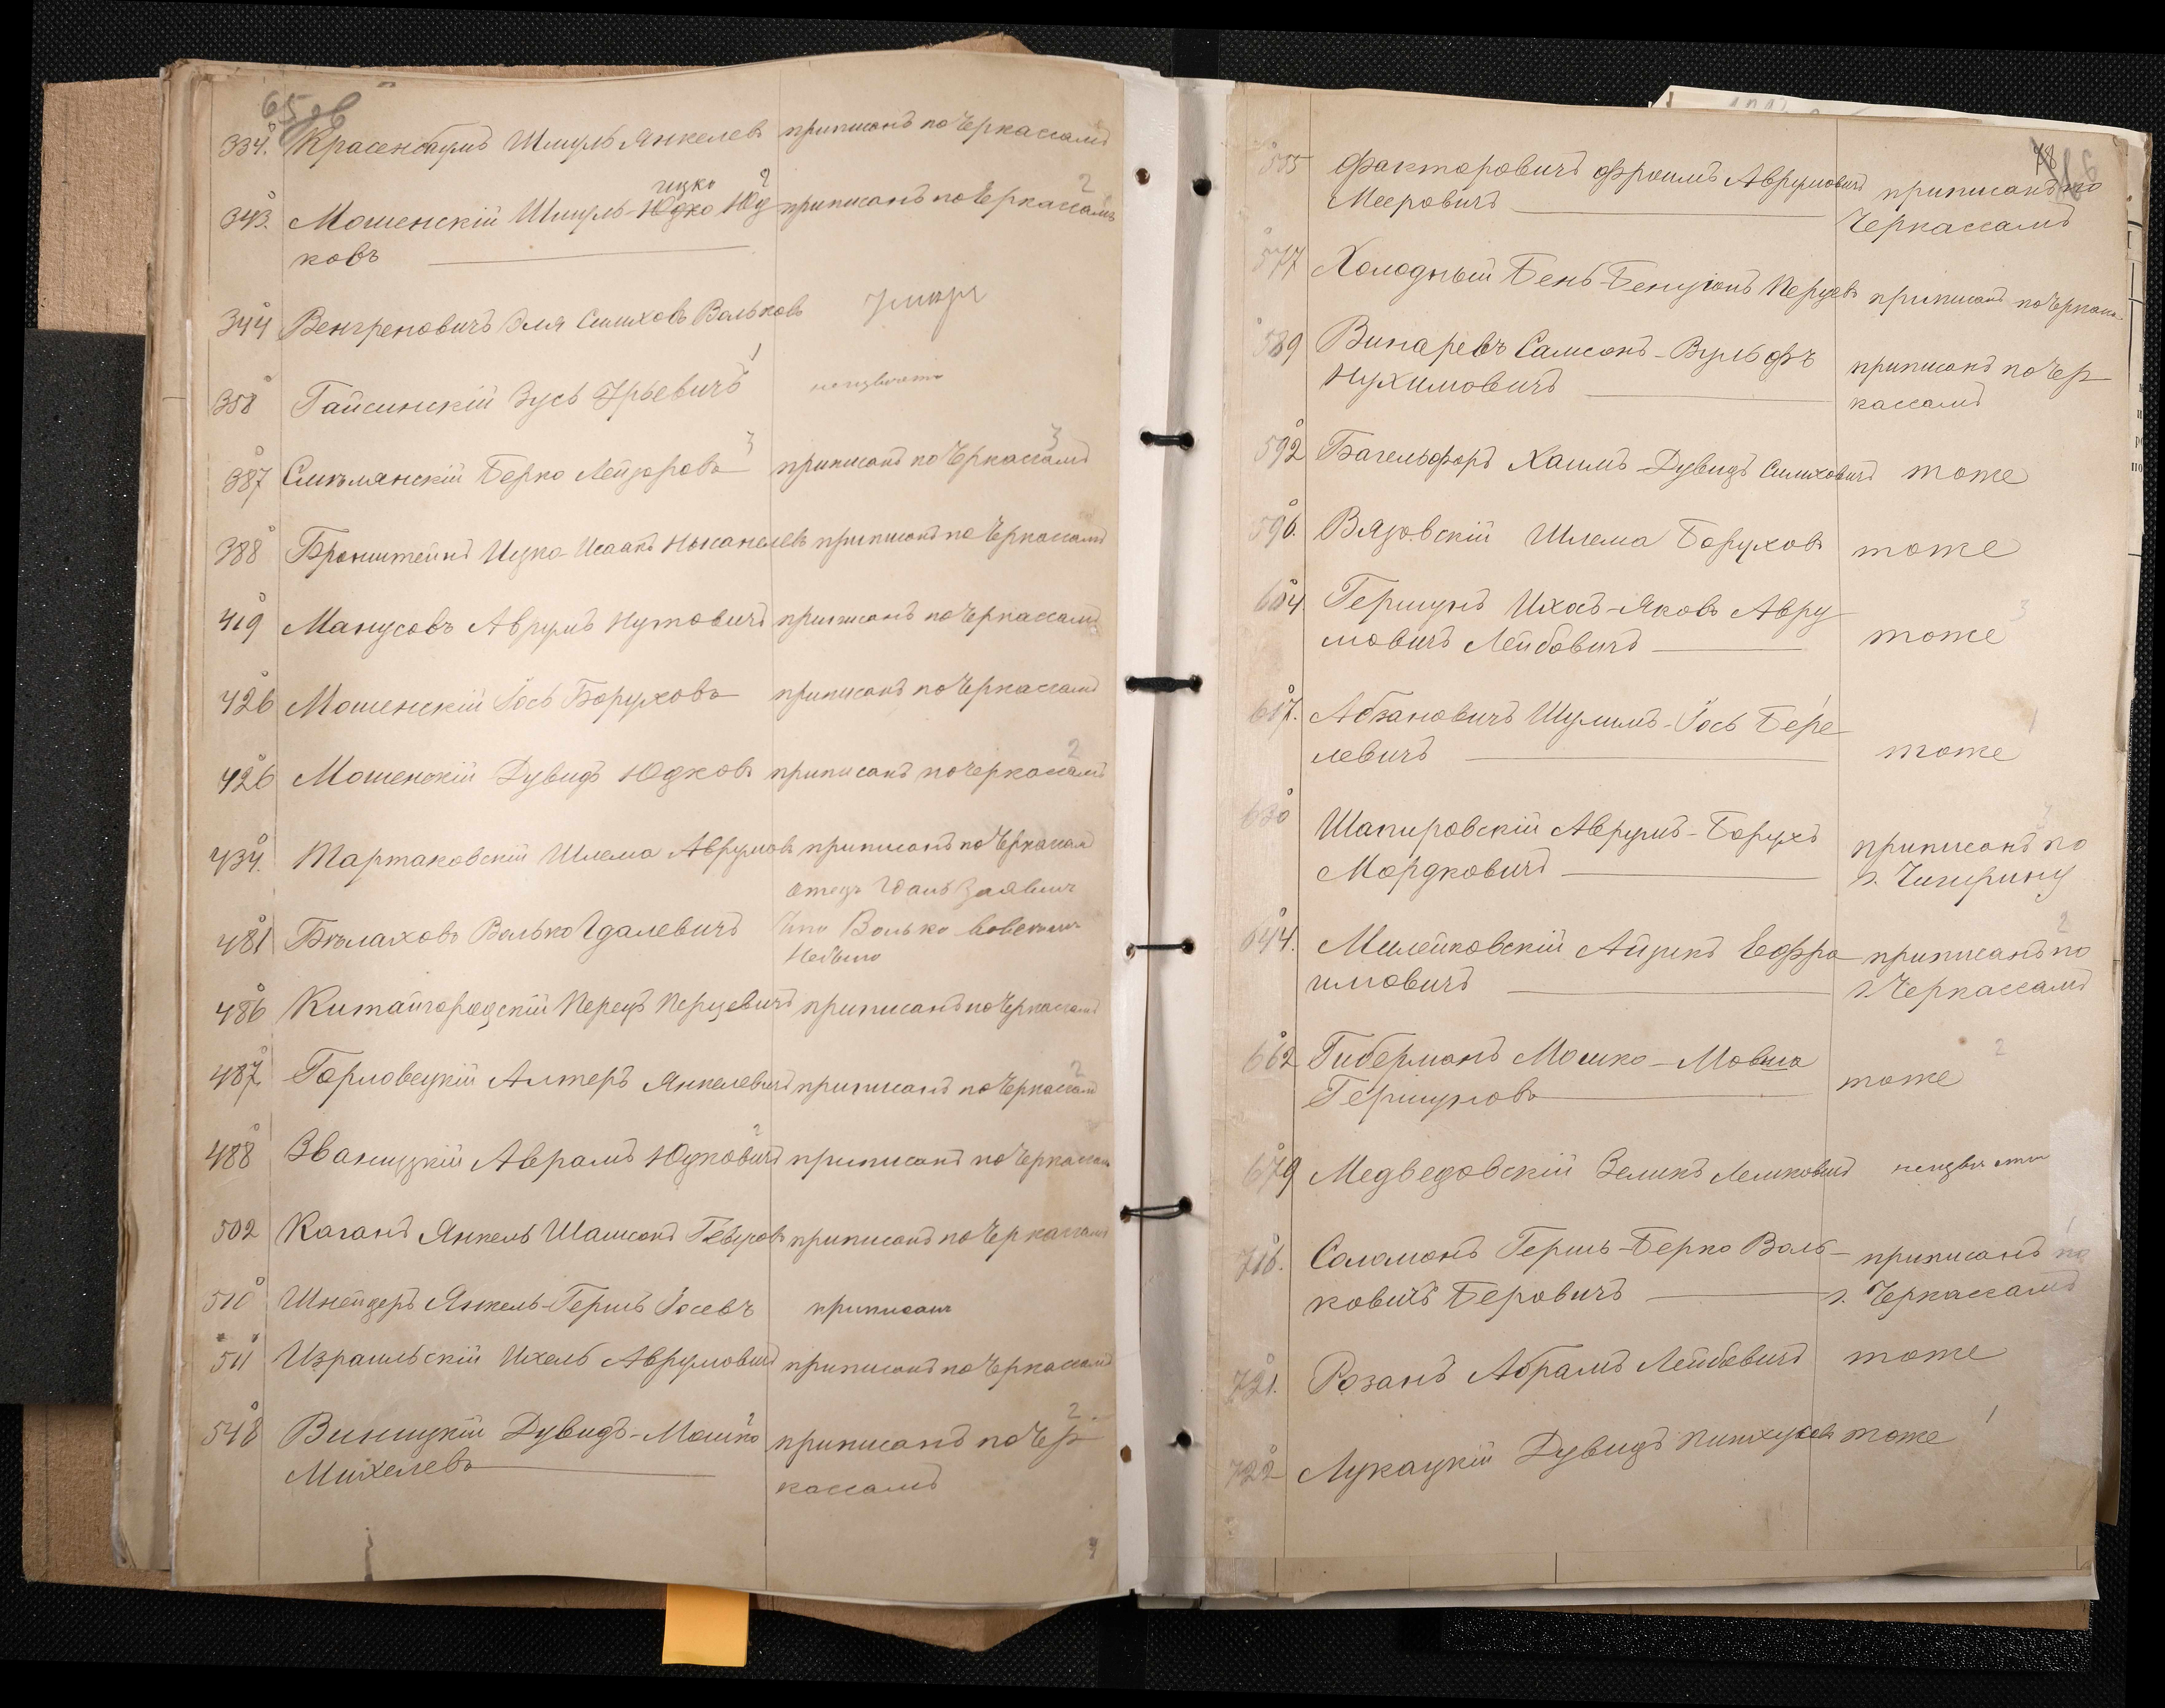 65 об
334. Красенбаумъ Шмуль Янкелевъ приписанъ по Черкассамъ
ицко 2 2
343. Мошенскій Шмуль-Юдко Юд приписанъ по Черкассамъ
ковъ
344 Венгреновичъ Эля Симховъ Вольковъ умеръ
358 Гайсинскій Зусь Урьевичъ 1 неизвѣстно
387 Смѣлянскій Берко Лейзоровъ 3 приписанъ по Черкассамъ 3
388 Бронштейнъ Ицко-Исаакъ Нысанелевъ приписанъ по Черкассамъ
419 Манусовъ Аврумъ Нутовичъ приписанъ по Черкассамъ
426 Мошенскій Іось Боруховъ приписанъ по Черкассамъ
426 Мошенскій Дувидъ Юдковъ приписанъ по Черкассамъ 2
434. Мартаковскій Шлема Аврумовъ приписанъ по Черкассам
отецъ Идаль Заявилъ
481 Бѣлаховъ Волько Идалевичъ что Волько вовсе
небыло
486 Китайгородскій Перецъ Перцевичъ приписанъ по Черкассамъ
487 Горловецкій Алтеръ Янкелевичъ приписанъ по Черкассамъ 2
488 Званицкій Аврамъ Юдковичъ 2 приписанъ по Черкассамъ
502 Каганъ Янкель Шамсонъ приписанъ по Черкассамъ
510 Шнейдеръ Янкель-Гершъ Іосевъ приписанъ
511 Израильскій Ихель Аврумовичъ приписанъ по Черкассамъ
548 Виницкій Дувидъ-Мошко 2 приписанъ по Чер 2
Михелевъ кассамъ
78 66
555 Факторовичъ Фроимъ Аврумовичъ приписанъ по
Мееровичъ Черкассамъ
577 Холодный Бень-Бенціонъ Перцевъ приписанъ по Черкасс
589 Винаревъ Самсонъ-Вульфъ приписанъ по Чер
Нухимовичъ кассамъ
592 Багельфоръ Хаимъ-Дувидъ Симховичъ тоже
596. Вязовскій Шлема Боруховъ тоже
604. Гершунъ Ихос-Яковъ Авру 3
мовичъ Лейбовичъ тоже
617. Абзановичъ Шулимъ-Іось Бере 1
левичъ тоже
630 Шапировскій Аврумъ-Борухъ приписанъ по
Мордковичъ г. Чигирину
644. Милейковскій Айзикъ Ефро приписанъ по 2
имовичъ г. Черкассамъ
662 Гиберманъ Мошко-Мовша 2
Гершуновъ тоже
679 Медведовскій Зеликъ Лейковичъ неизвѣстно
716. Соломонъ Гершъ-Берко Воль- приписанъ по 1
ковичъ Беровичъ г. Черкассамъ
721. Розанъ Абрамъ Лейбовичъ тоже
722 Лукацкій Дувидъ Пинхусовъ тоже 1